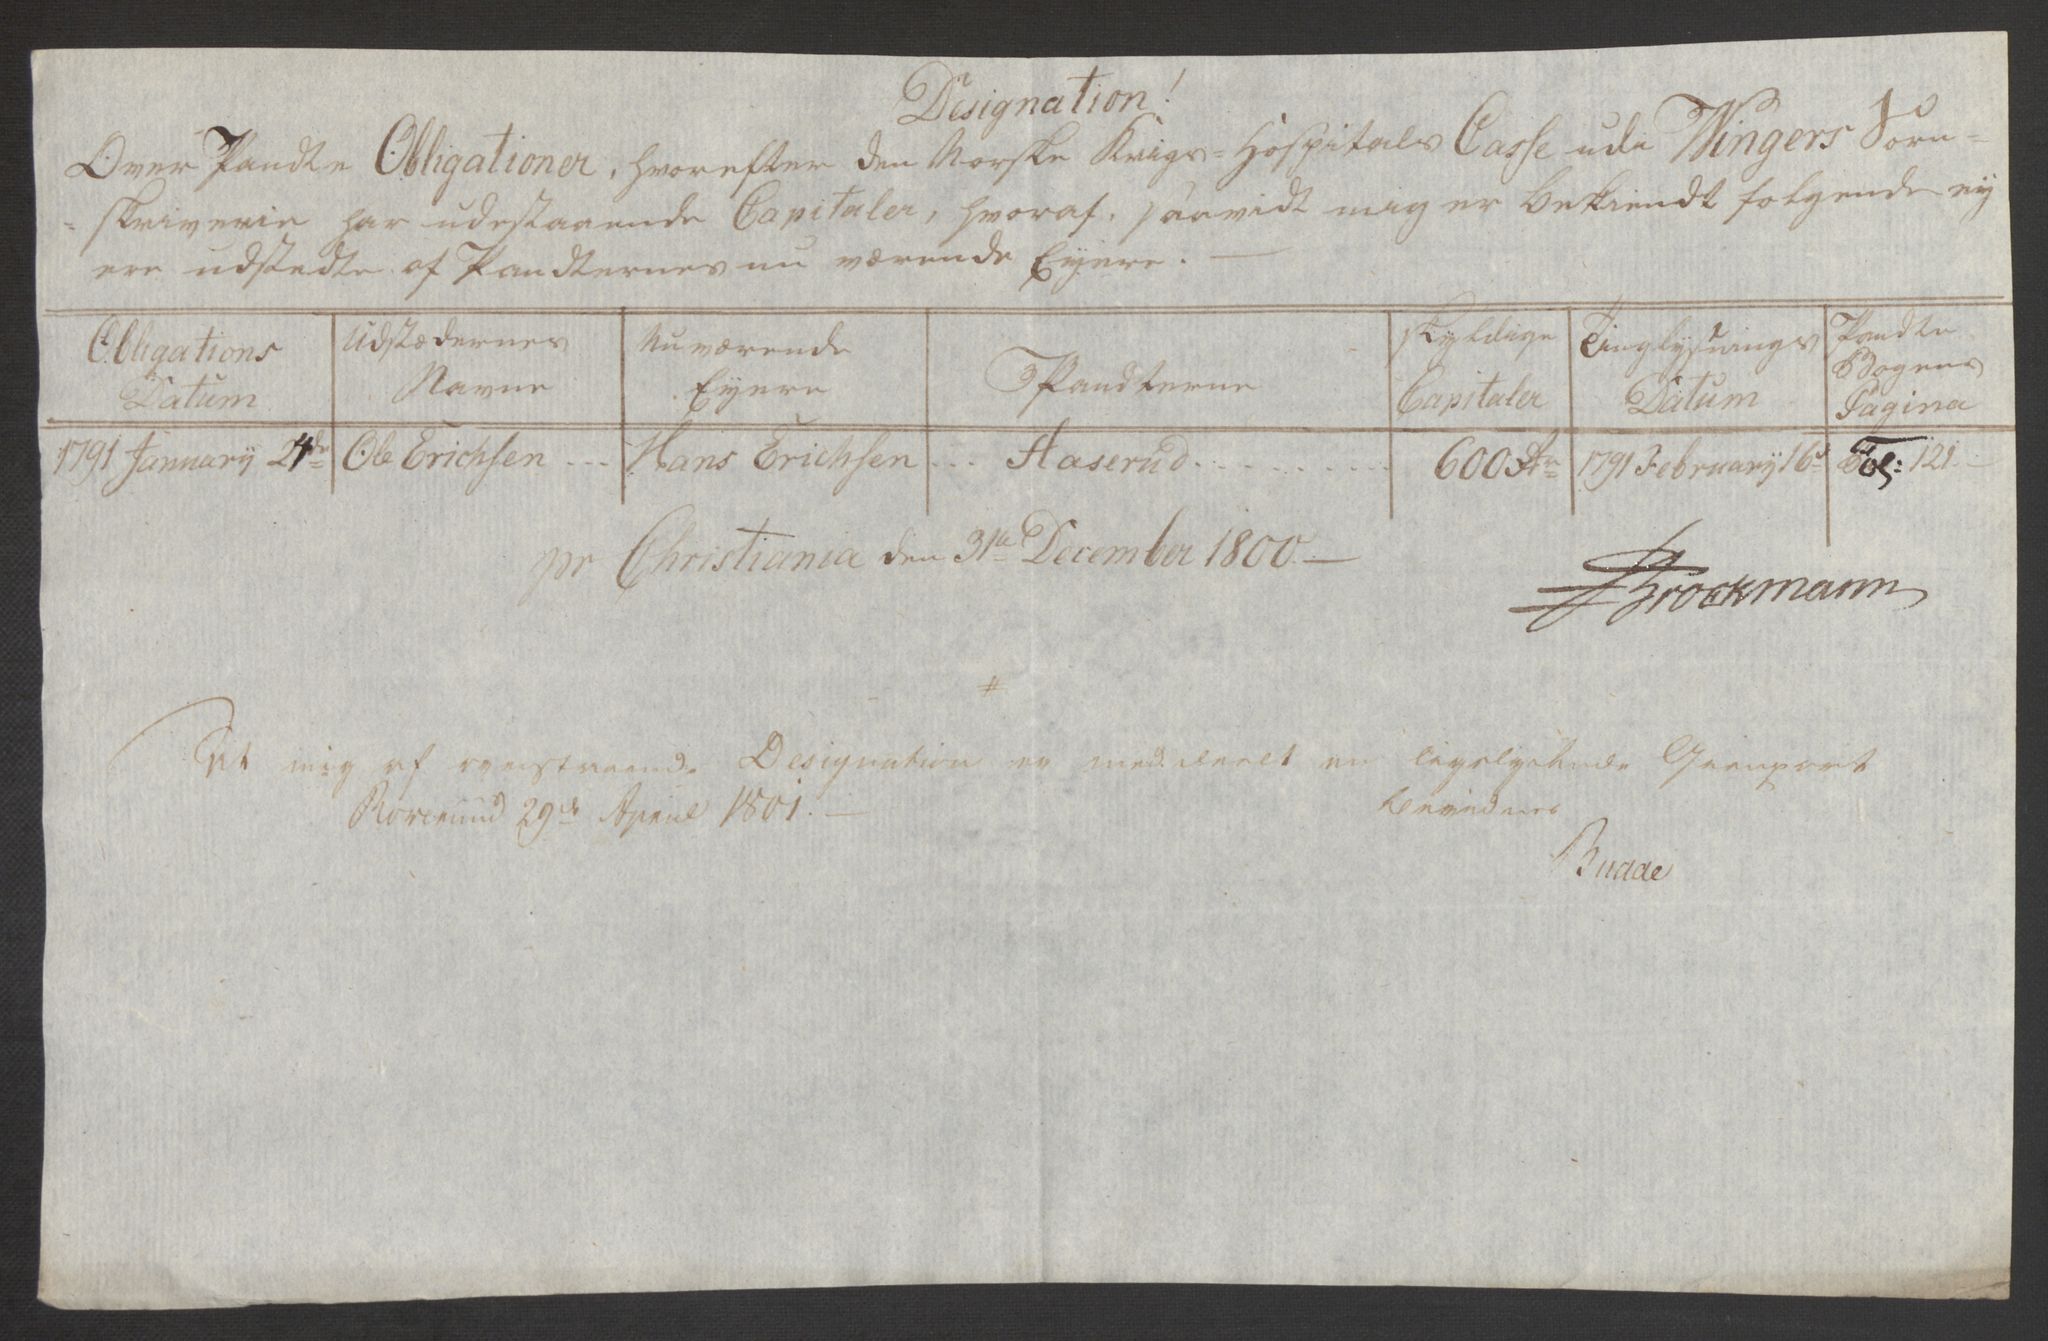 Designation!
Over Pandte Obligationer, hvorefter den Norske Krigs-Hospitals Casse udi Wingers Soren-
-skriverie har udestaaende Capitaler, hvoraf, saavidt mig er bekiendt følgende ey
ere udstedte af Pandternes nu værende Eyere. —
Obligations Datum | Udstædernes Navne | Nuværende Eyere | Pandterne | Skyldige Capitaler | Tinglysnings Datum | Pandte Bogens Pagina
1791 January 24de | Ole Erichsen ... | Hans Erichsen ... | Haserud .......... | 600 | 1791 February 16d | Fol: 121. —
pr Christiania den 31te December 1800. —
Brockmann
#
At mig af ovenstaaende Designation er meddeelt en ligelydende Gienpart
bevidnes
29de April 1801. —